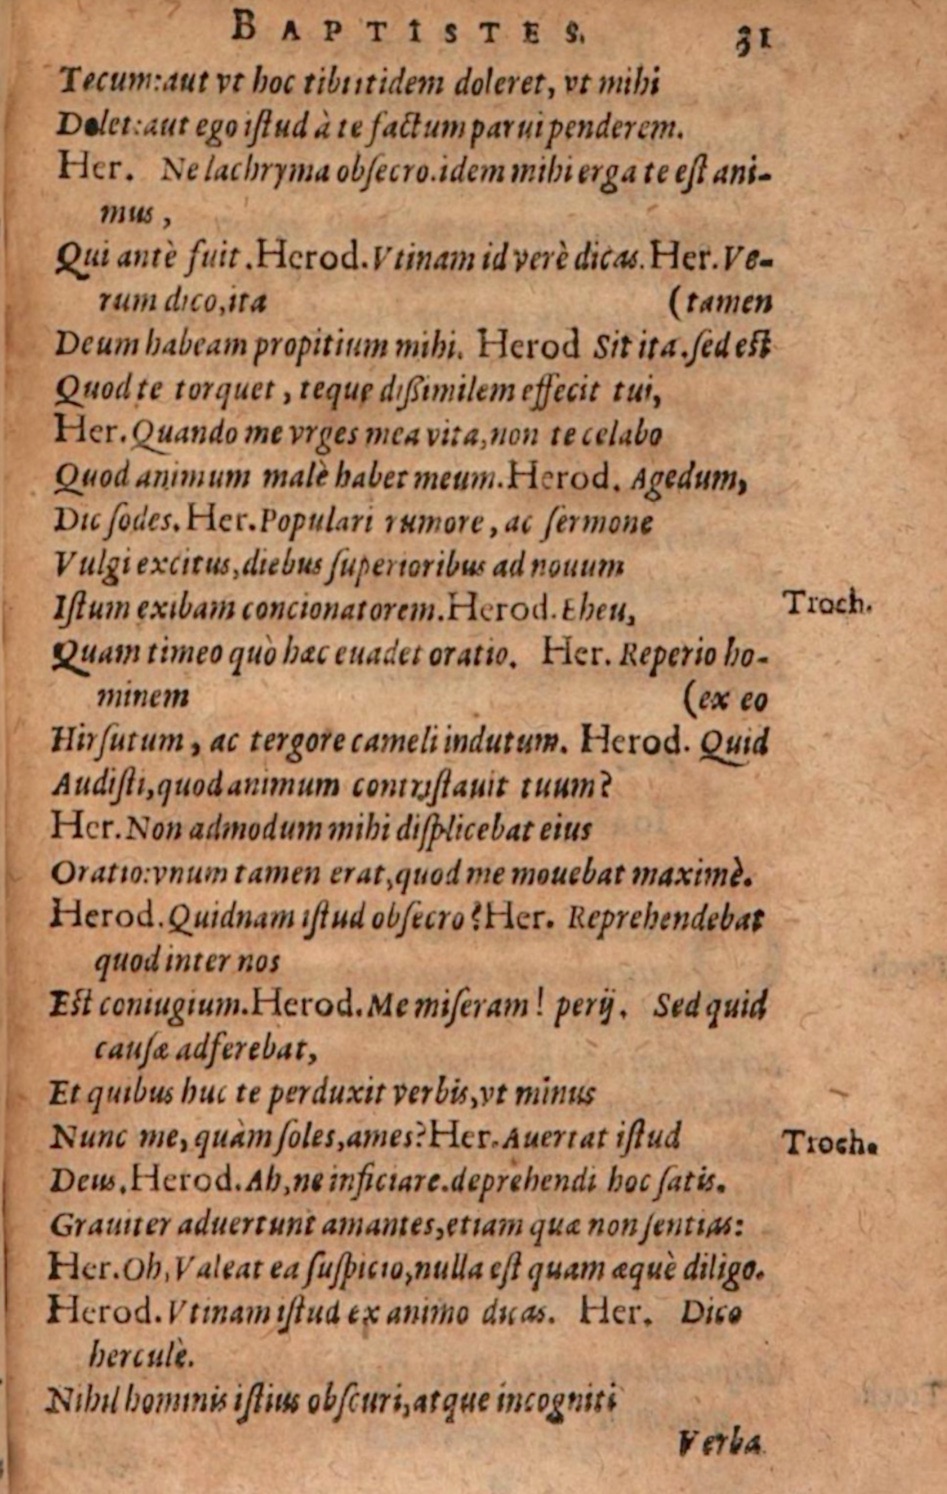 BAPTISTES. 31
Tecum: aut vt hoc tibi itidem doleret, vt mihi
Dolet: aut ego iſtud à te factum parui penderem.
Her. Ne lachryma obſecro. idem mihi erga te eſt ani-
mus,
Qui antè fuit. Herod. Vtinam id verè dicas. Her. Ve-
rum dico, ita (tamen
Deum habeam propitium mihi. Herod Sit ita. ſed eſt
Quod te torquet, teque dißimilem effecit tui,
Her. Quando me vrges mea vita, non te celabo
Quod animum malè habet meum. Herod. Agedum,
Dic ſodes. Her. Populari rumore, ac ſermone
Vulgi excitus, diebus ſuperioribus ad nouum
Iſtum exibam concionatorem. Herod. Eheu, Troch.
Quam timeo quò hæc euadet oratio. Her. Reperio ho-
minem (ex eo
Hirſutum, ac tergore cameli indutum. Herod. Quid
Audiſti, quod animum contriſtauit tuum?
Her. Non admodum mihi diſplicebat eius
Oratio: vnum tamen erat, quod me mouebat maximè.
Herod. Quidnam iſtud obſecro? Her. Reprehendebat
quod inter nos
Eſt coniugium. Herod. Me miſeram! perij. Sed quid
cauſæ adferebat,
Et quibus huc te perduxit verbis, vt minus
Nunc me, quàm ſoles, ames? Her. Auertat iſtud Troch.
Deus. Herod. Ah, ne inficiare. deprehendi hoc ſatis.
Grauiter aduertunt amantes, etiam quæ non ſentias:
Her. Oh, Valeat ea ſuſpicio, nulla eſt quam æquè diligo.
Herod. Vtinam iſtud ex animo dicas. Her. Dico
herculè.
Nihil hominis iſtius obſcuri, atque incogniti
Verba